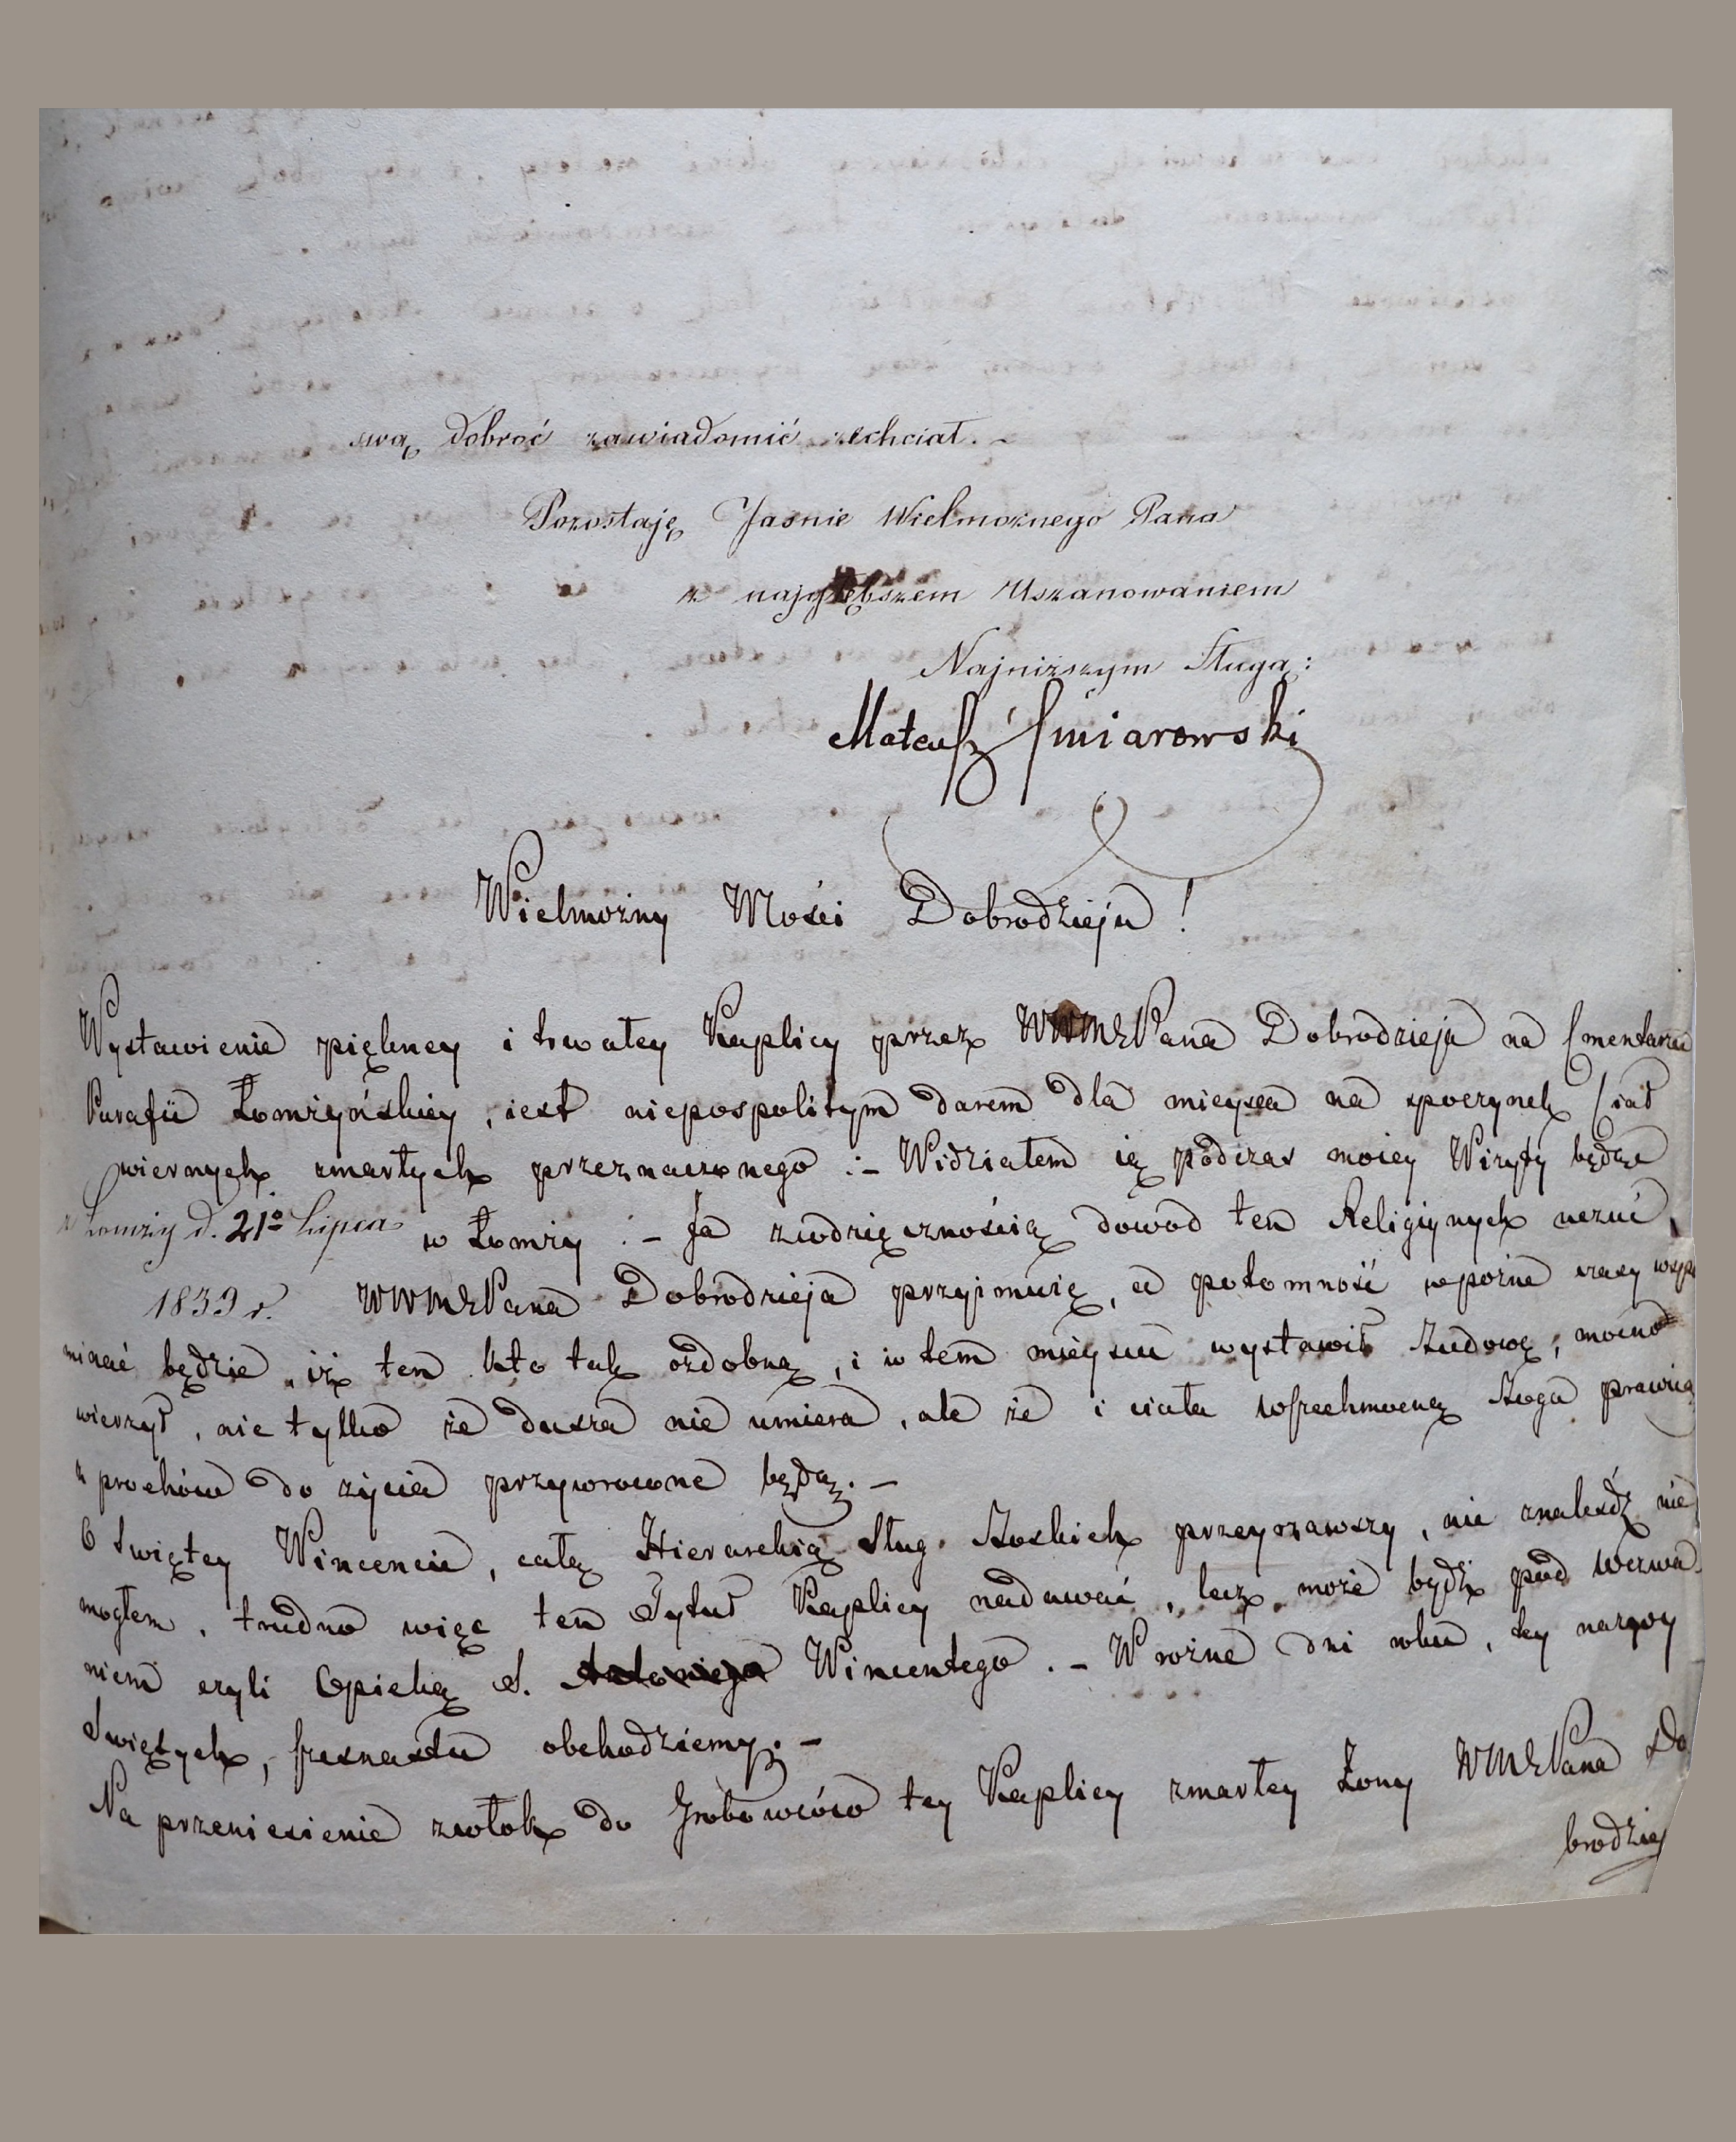 swą dobroć zawiadomić zechciał. –
Pozostaję Jasnie Wielmożnego Pana
z najgłębszem Uszanowaniem
Najniższym Sługą:
Mateusz Śmiarowski
Wielmożny Mości Dobrodzieju!
Wystawienie piękney i trwałey Kaplicy przez WWMCPana Dobrodzieja na Cmentarzu
Parafii Łomżyńskiey, iest niepospolitym darem dla mieysca na spoczynek Ciał
wiernych zmarłych przeznaczonego :– Widziałem ią podczas moiey Wizyty będąc
w Łomży :– Ja zwdzięcznością dowod ten Religiynych uczuć
z Łomży d. 21º Lipca
1839 r.
WWMCPana Dobrodzieja przyimuię, a potomność wpoźne czasy wspo
minać będzie, iż ten kto tak ozdobną, i w tem mieyscu wystawił Budowę, mocno
wierzył, nie tylko że dusza nie umiera, ale że i ciała wszechmocną Boga prawicą
z prochów do życia przywrocone będą. –
O Swiętey Wincencie, całą Hierarchią Sług Boskich przeyrzawszy, nie znaleśdź nie
mogłem, trudno więc ten Tytuł Kaplicy nadawać, lecz może bydź pod Wezwa
niem czyli Opieką S. Wincentego. – W rożne dni roku, tey nazwy
Swiętych, obchodziemy. –
Na przeniesienie zwłok do Grobowców tey Kaplicy zmarłey Żony WMCPana Do
brodziej